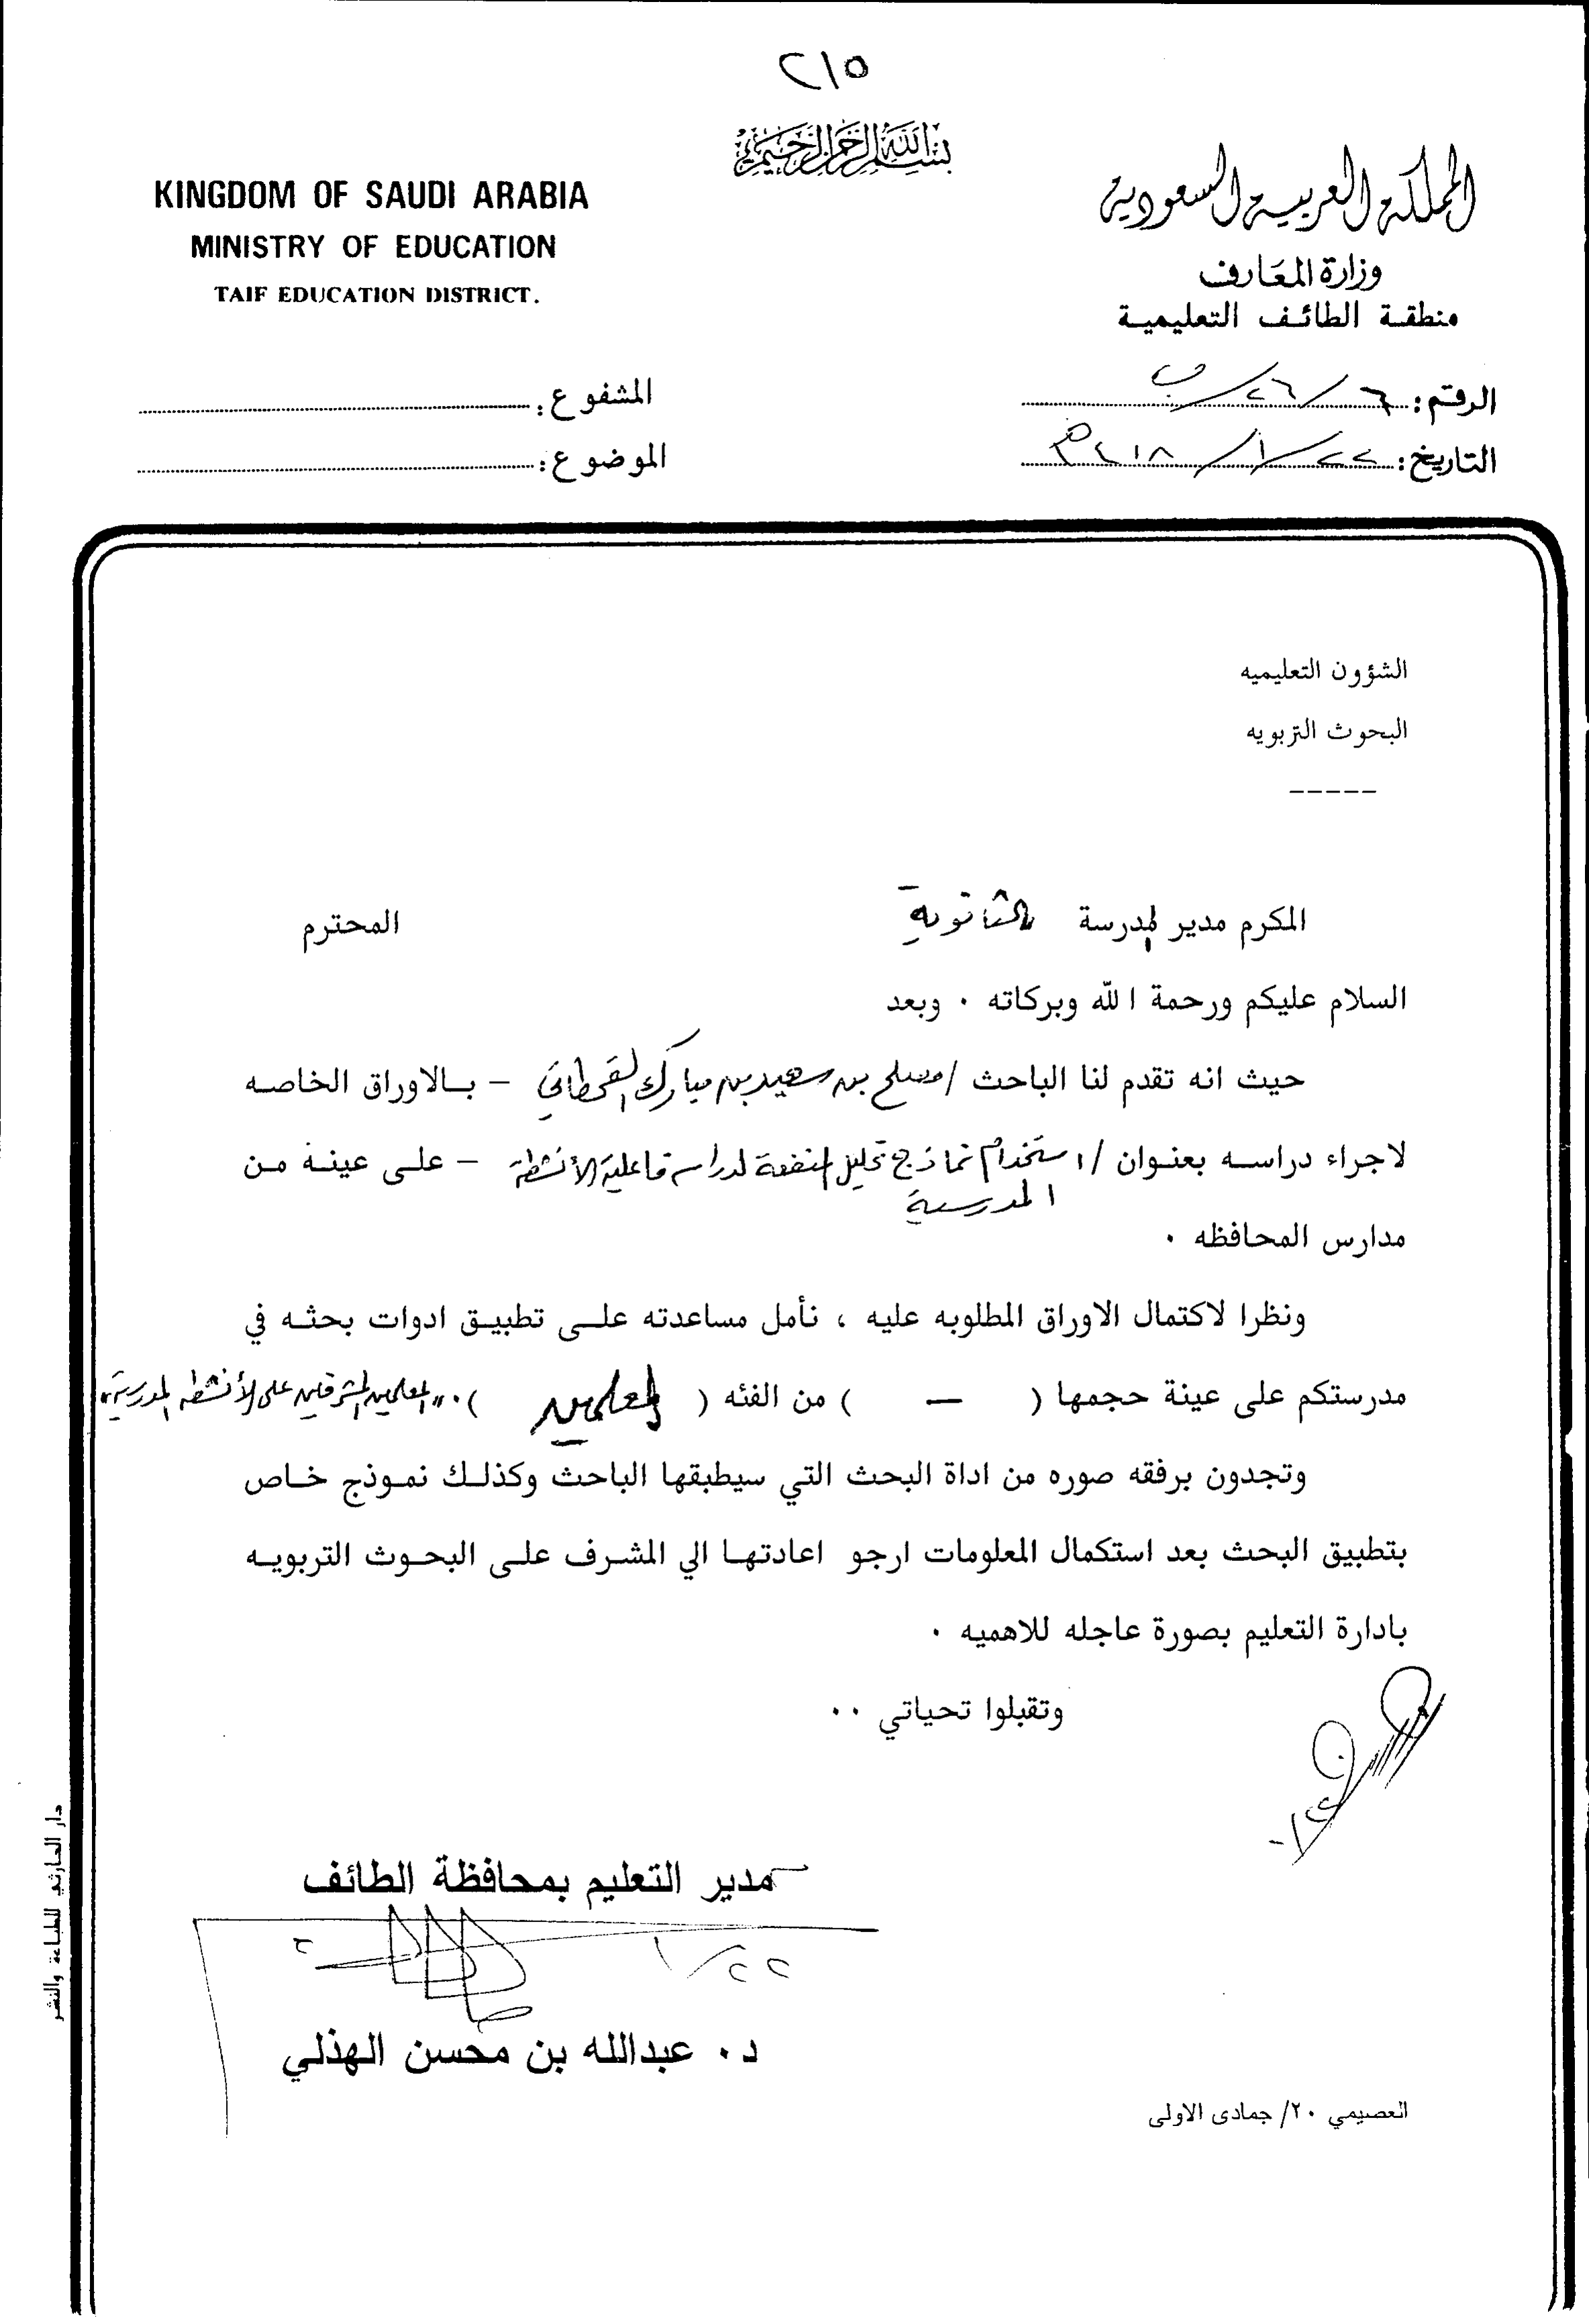 ٢١٥
بسم الله الرحمن الرحيم
KINGDOM OF SAUDI ARABIA
MINISTRY OF EDUCATION
TAIF EDUCATION DISTRICT.
المملكة العربية السعودية
وزارة المعارف
منطقة الطائف التعليمية
الرقم: ٢٦/٦/ب
التاريخ: ٢٢/١/١٤١٨هـ
المشفوع:
الموضوع:
الشؤون التعليميه
البحوث التربويه
-----
المكرم مدير المدرسة الثانوية المحترم
السلام عليكم ورحمة الله وبركاته ٠ وبعد
حيث انه تقدم لنا الباحث / مصلح بن سعيد بن مبارك القحطاني - بالاوراق الخاصه
لاجراء دراسه بعنوان / استخدام نماذج تحليل المنفعة لدراسة فاعلية الأنشطة - على عينة من
المدرسية
مدارس المحافظه ٠
ونظرا لاكتمال الاوراق المطلوبه عليه ، نأمل مساعدته على تطبيق ادوات بحثه في
مدرستكم على عينة حجمها ( — ) من الفئه ( المعلمين ) ٠ "المعلمين المشرفين على الأنشطة المدرسية"
وتجدون برفقه صوره من اداة البحث التي سيطبقها الباحث وكذلك نموذج خاص
بتطبيق البحث بعد استكمال المعلومات ارجو اعادتها الي المشرف على البحوث التربويه
بادارة التعليم بصورة عاجله للاهميه ٠
وتقبلوا تحياتي ٠٠
مدير التعليم بمحافظة الطائف
٢٢/١
د٠ عبدالله بن محسن الهذلي
العصيمي ٢٠/ جمادى الاولى
دار الحارثي للطباعة والنشر